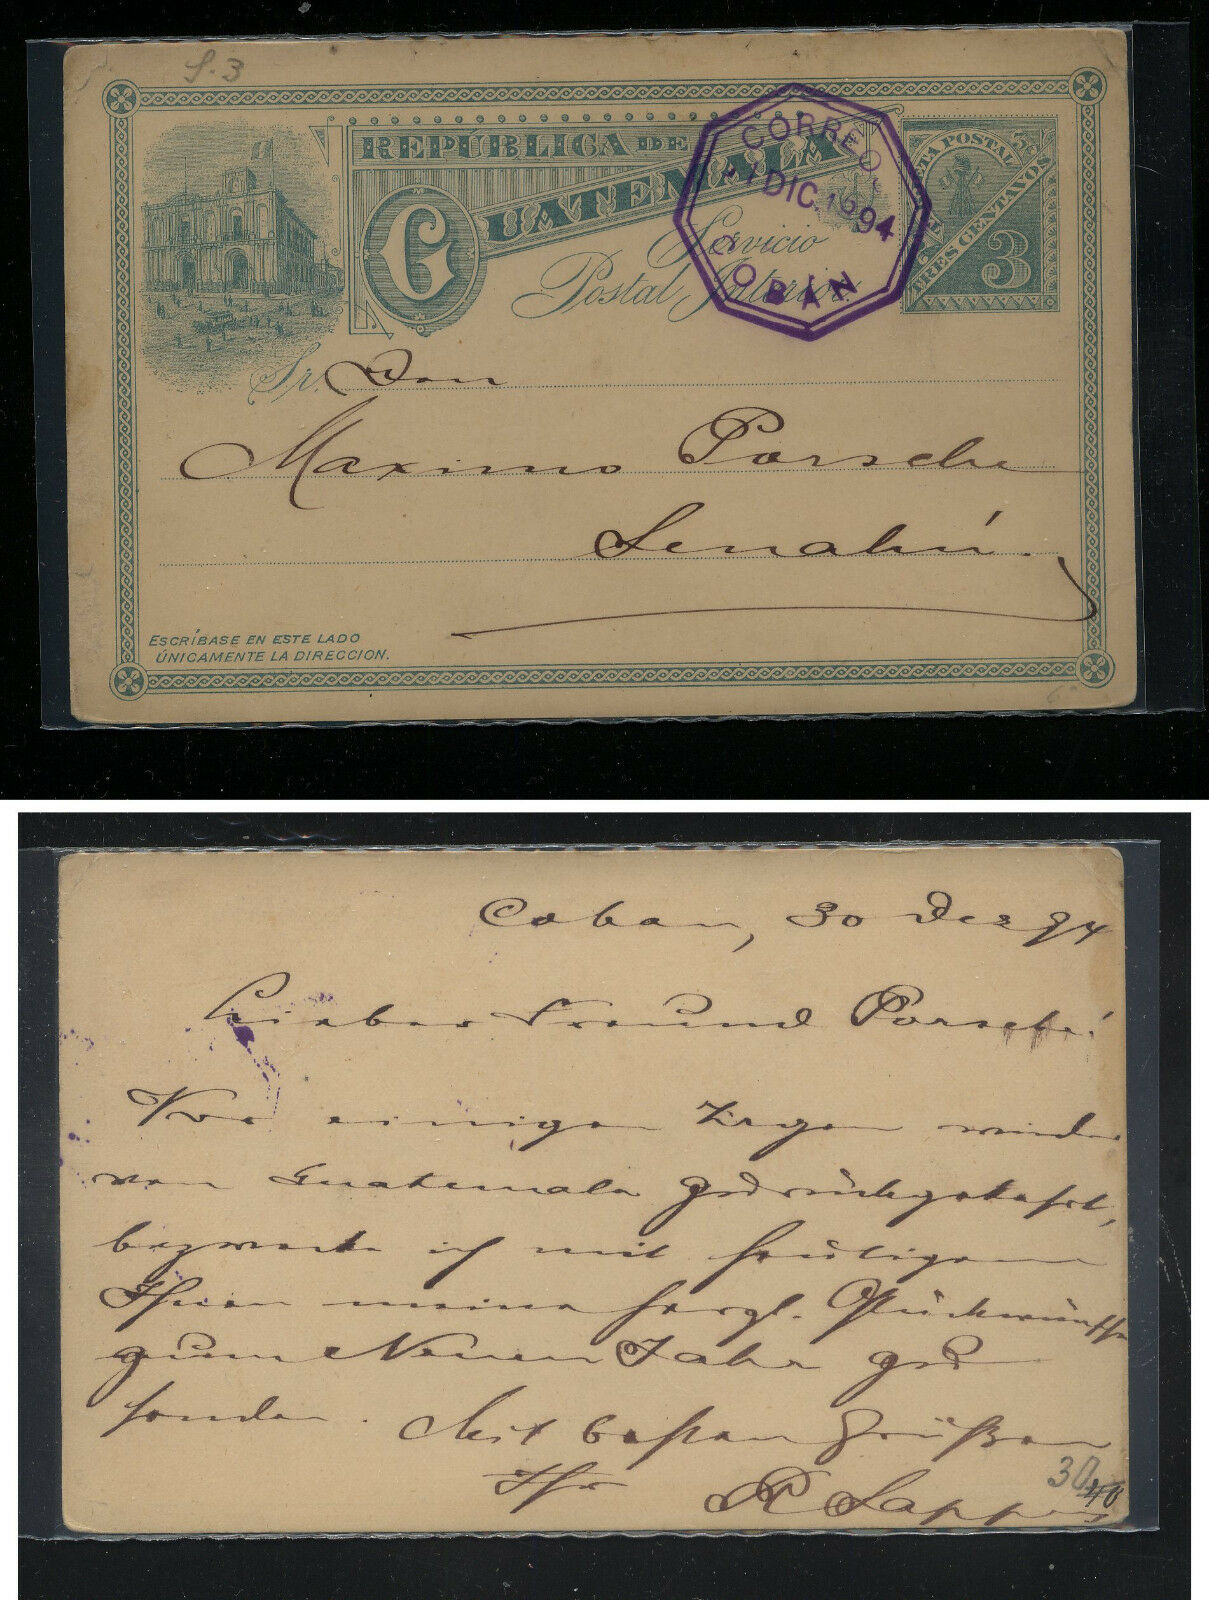 S.3
REPÚBLICA DE
GUATEMALA
Servicio
Postal Interior
TARJETA POSTAL
TRES CENTAVOS
3
CORREOS
DIC. 1894
COBAN
Sr. Don
Maximo Porsche
Senahú.
ESCRÍBASE EN ESTE LADO
ÚNICAMENTE LA DIRECCION.
Coban, 30 Dez 94
Lieber Freund Porsche!
Vor einigen Tagen wieder
von Guatemala zurückgekehrt,
bezwecke ich mit heutigem
Ihnen meine herzl. Glückwünsche
zum Neuen Jahr zu
senden. Mit besten Grüßen
Ihr R Sapper
30
40